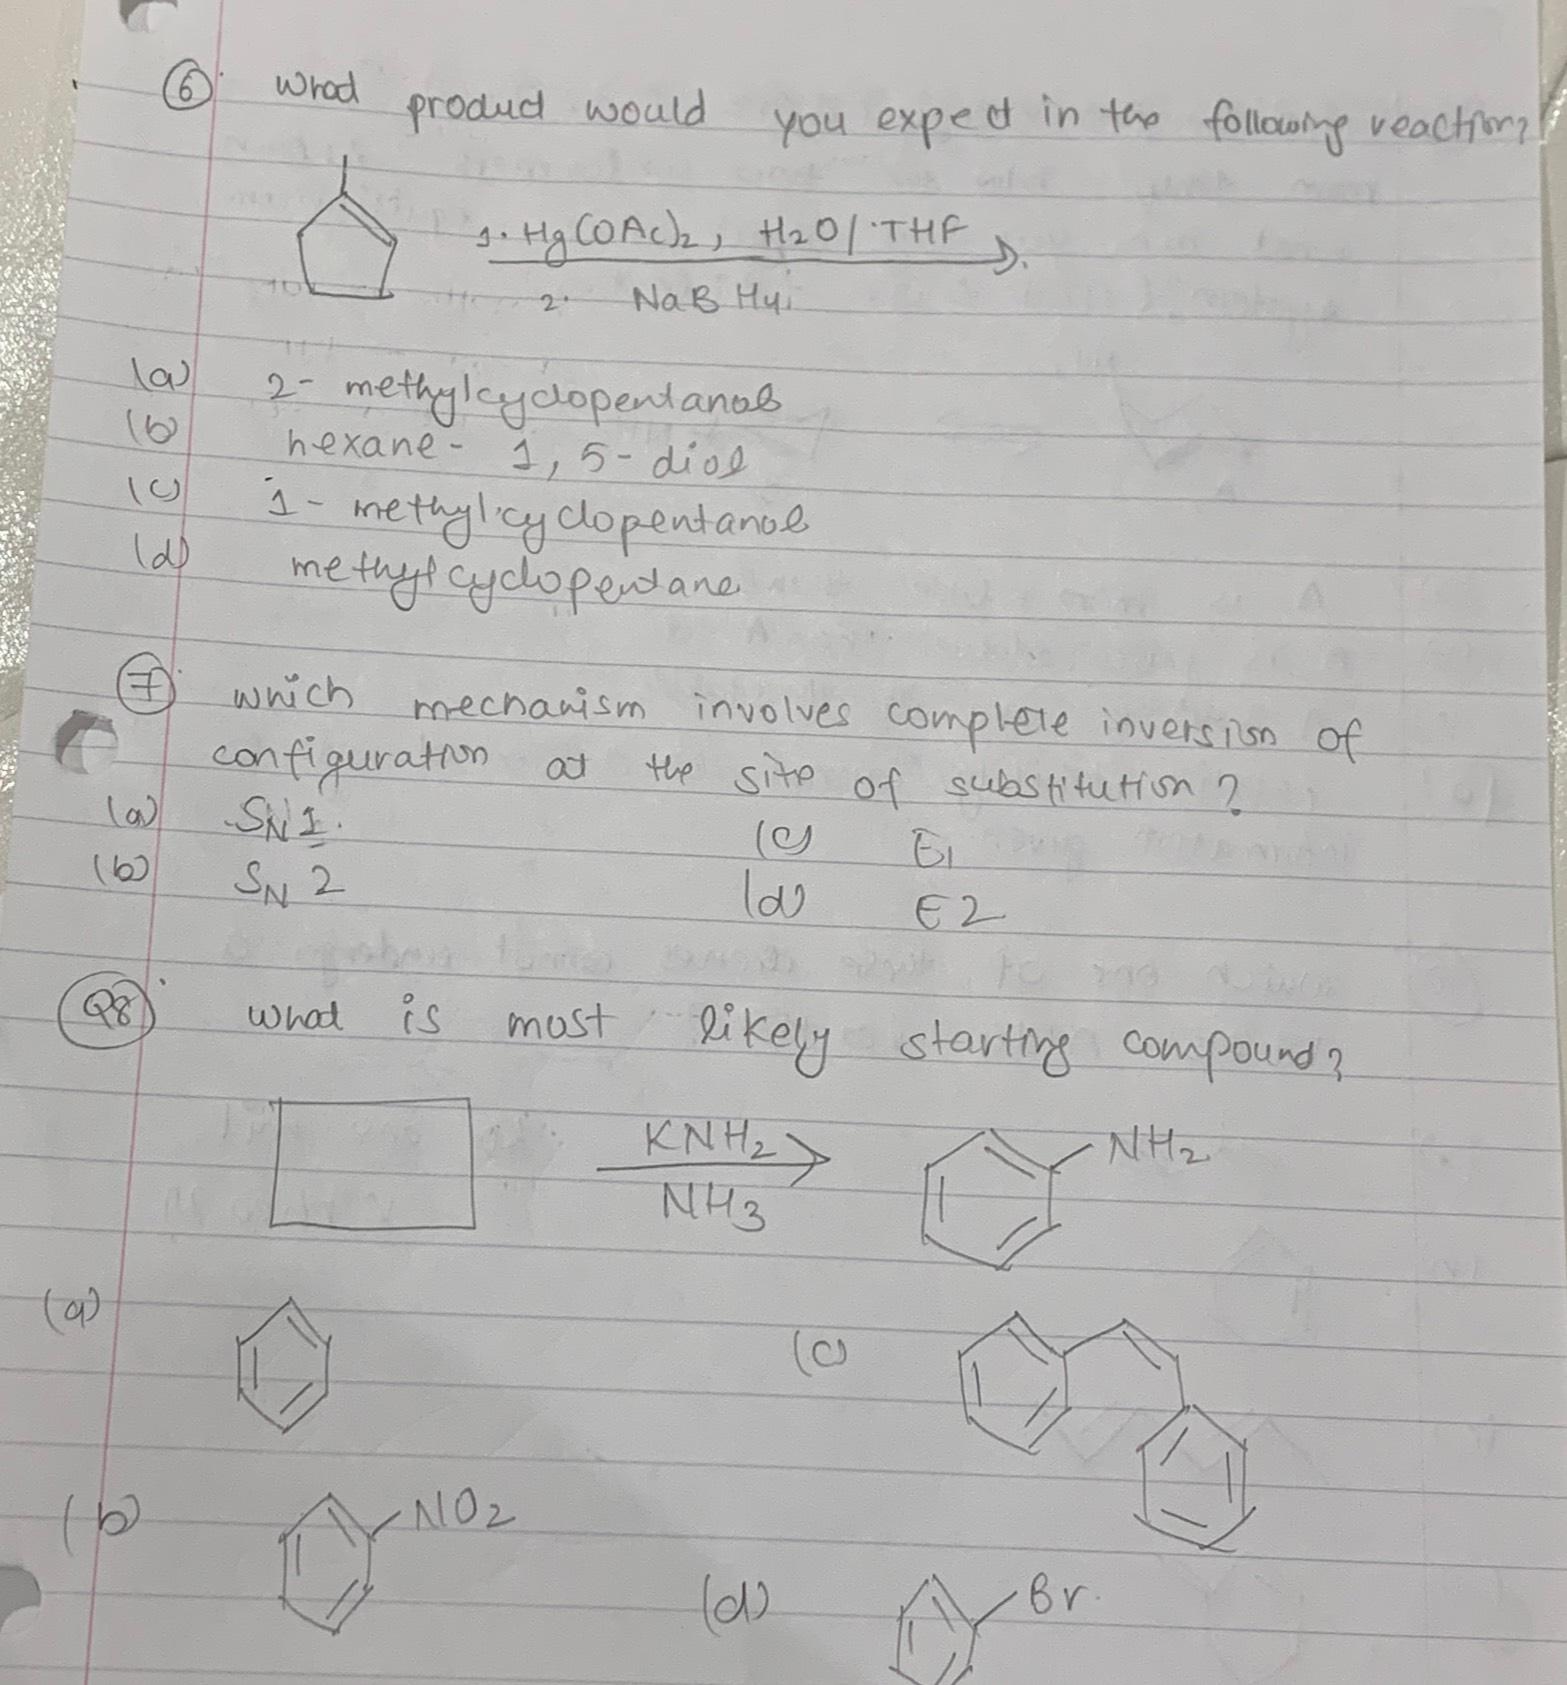 ⑥ What product would you expect in the following reaction?
1. Hg(OAc)2, H2O/THF
2. NaBH4
(a) 2- methylcyclopentanol
(b) hexane- 1, 5- diol
(c) 1- methylcyclopentanol
(d) methylcyclopentane
⑦ which mechanism involves complete inversion of
configuration at the site of substitution?
(a) SN1.
(c) E1
(b) SN2
(d) E2
Q8 what is most likely starting compound?
KNH2
NH3
NH2
(a)
(c)
(b)
NO2
(d)
Br